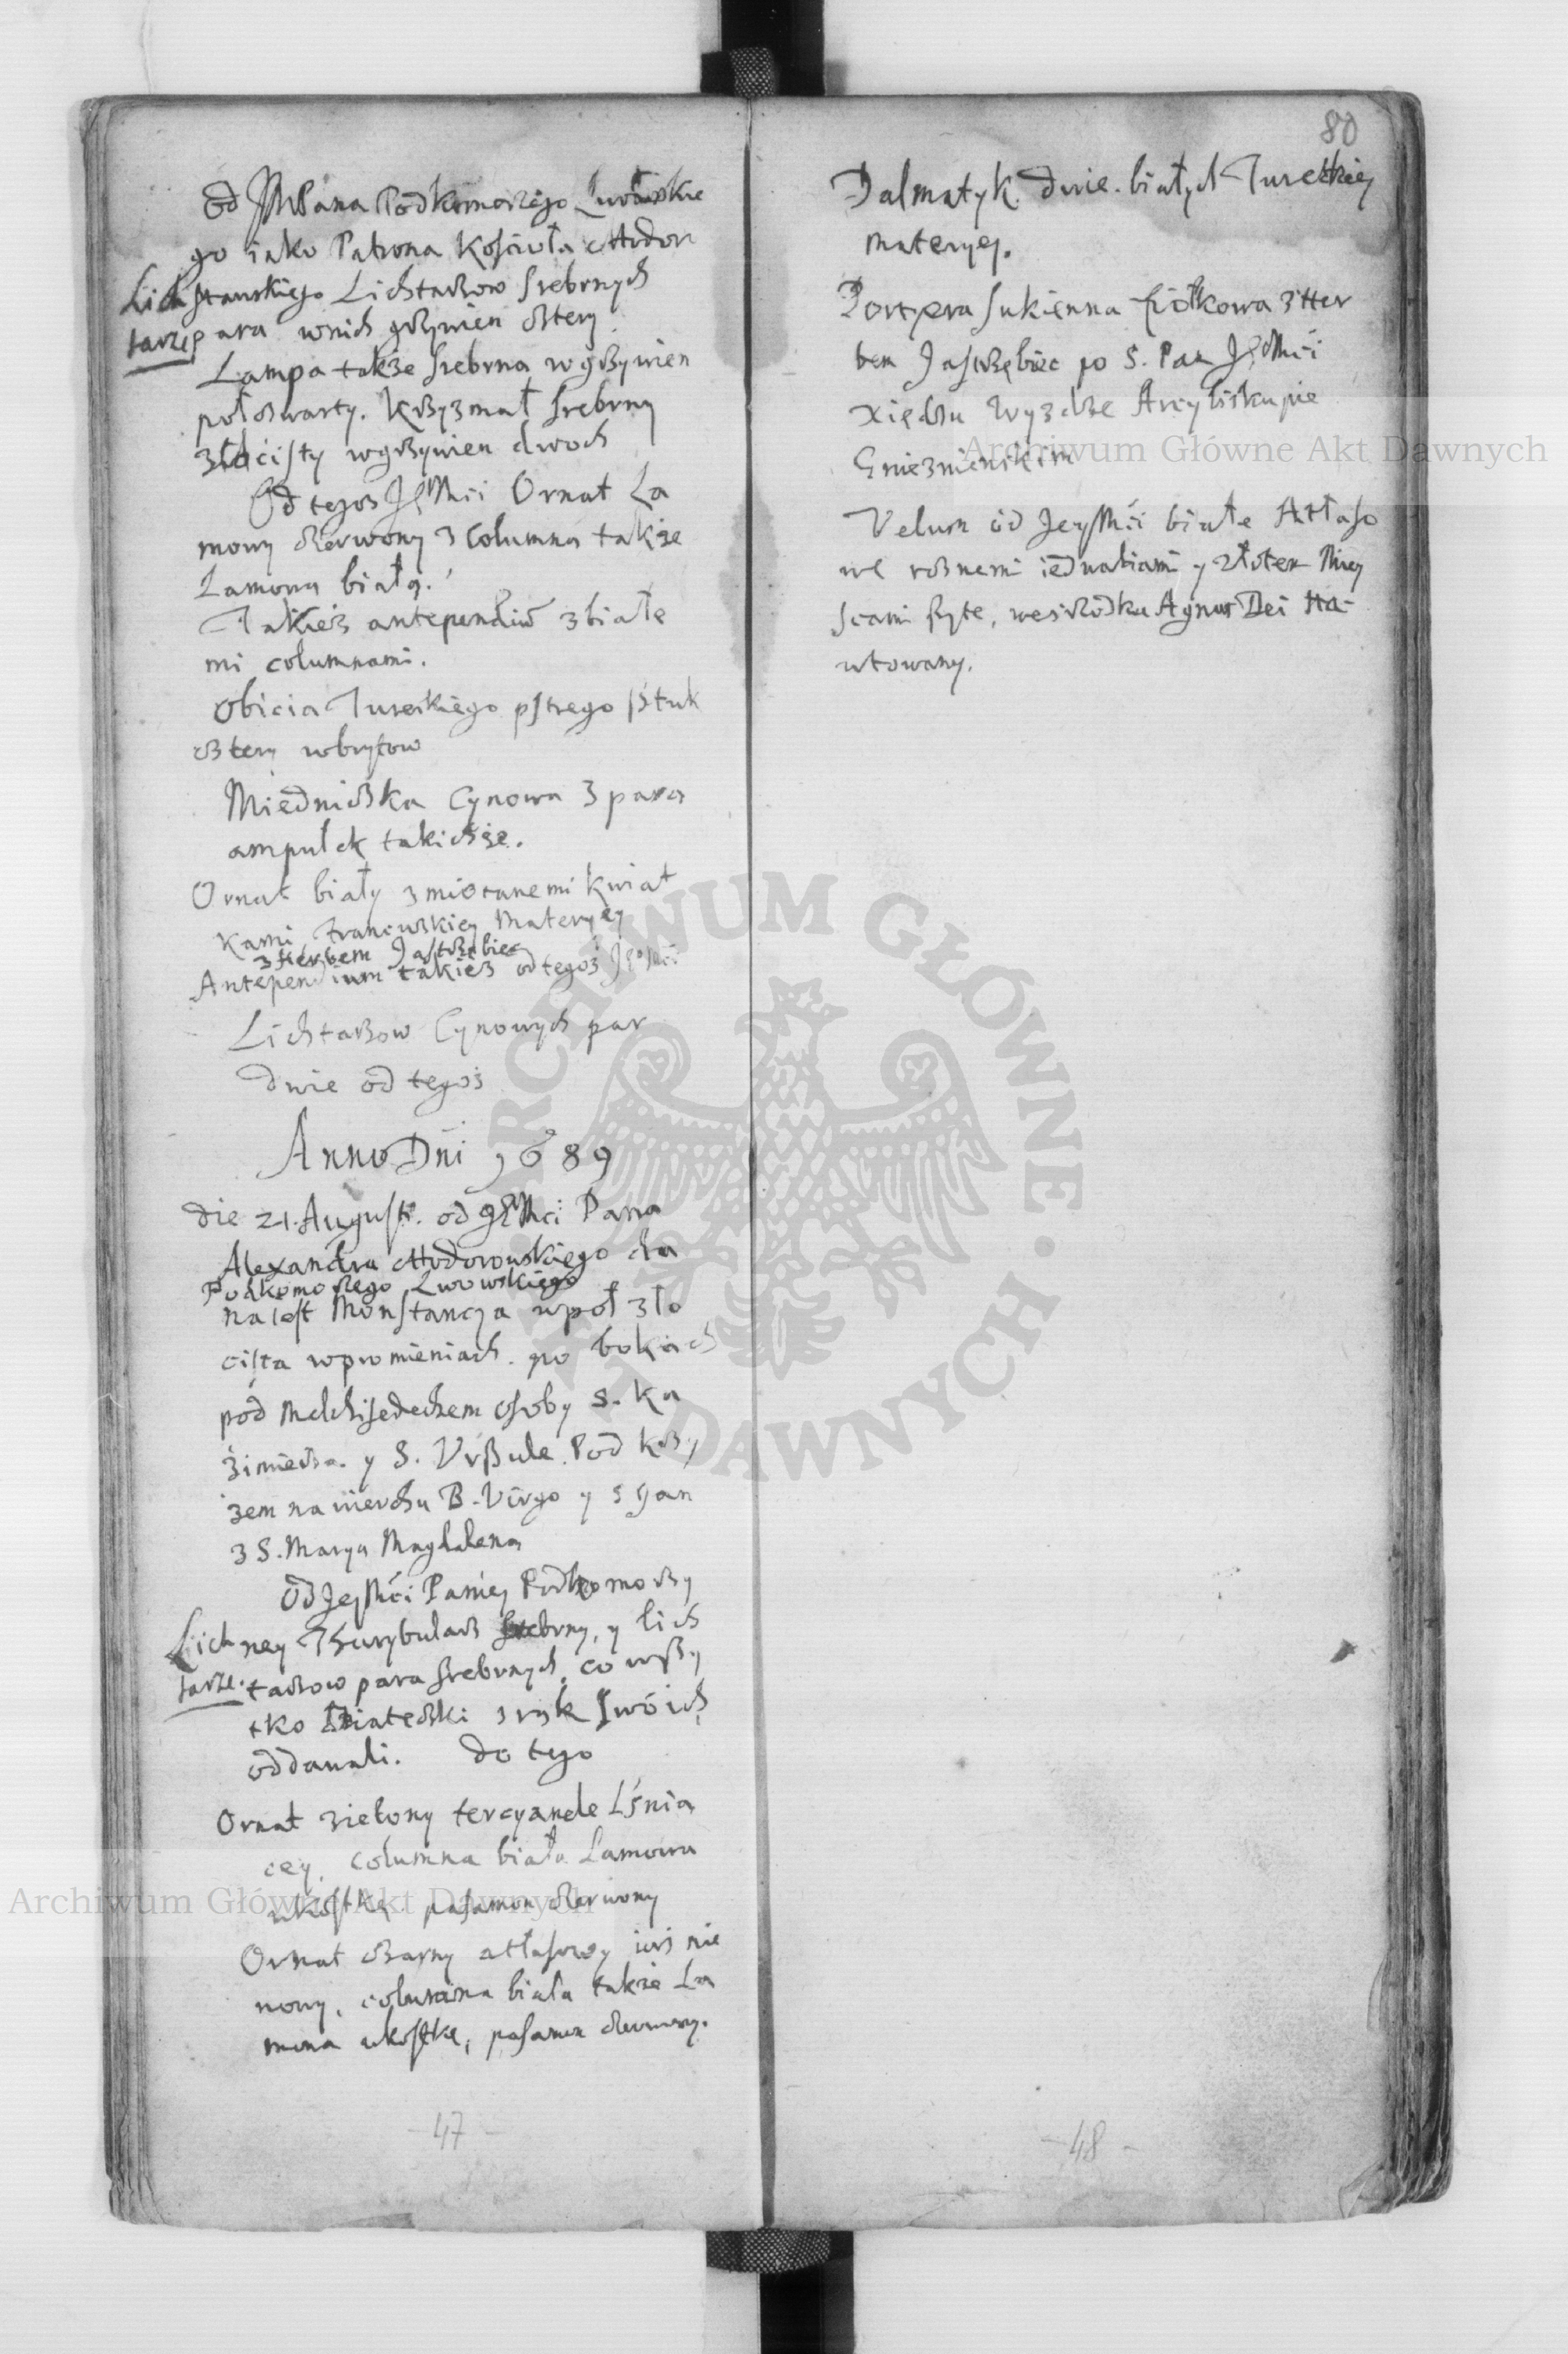 80
Od JMPana Podkomorzego Lwowskie
go iako Patrona Kościoła Chodor
Lich stawskiego Lichtarzow srebrnych
tarze para wnich grzywien cztery
Lampa także srebrna w grzywien
połczwarty. Krzyzmał srebrny
złocisty wgrzywien dwoch
Od tegoz JEMci Ornat La
mowy czerwony z Columną także
Lamową białą.
Takiesz antependiu z białe
mi columnami.
Obicia Tureckiego pstrego sztuk
cztery wbrytow
Miedniczka Cynowa z parą
ampułek takichże.
Ornat biały z miotanemi kwiat
kami francuskiey Materyey
z Herbem Jastrzębiec
Antependium takiesz od tegoż
Lichtarzow Cynowych par
dwie od tegoż
Anno Dni 1689
die 21. Augusti. od JEMci Pana
Alexandra Chodorowskiego da
Podkomorzego Lwowskiego
na iest Monstancya wpoł zło
cista wpromieniach. po bokach
pod Melchisedechem osoby S. Ka
zimierza. y S. Vrszule. Pod krzy
zem na wierzchu B. Virgo y S Jan
z S. Maryą Magdaleną
Od JeyMci Paniey Podkomorzy
Lich ney Thurybularz srebrny, y lich
tarze. tarzow para srebrnych, co wszy
tko Dziateczki z rąk swoich
oddawali. Do tego
Ornat zielony tercyanele Lśnia
cey, columna biała Lamowa
wkostkę pasamon czerwony
Ornat czarny atłasowy iusz nie
nowy, columna biała także La
mowa wkostkę, pasamon czerwony.
47
Dalmatyk. dwie. białych Tureckiey
materyey.
Portyera sukienna fiołkowa z Her
bem Jastrzębiec po S. Pam JEMci
Xiędzu Wyzdze Arcybiskupie
Gnieznienskim
Velum od JeyMci białe Atłaso
we roznemi iedwabiami y złotem Miey
scami szyte, wesrzodku Agnus Dei Ha-
wtowany.
48
Archiwum Główne Akt Dawnych
Archiwum Główne Akt Dawnych
ARCHIWUM GŁÓWNE · AKT DAWNYCH ·